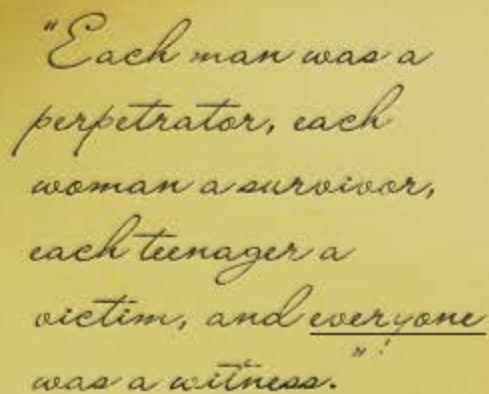 "Each man was a
perpetrator, each
woman a survivor,
each teenager a
victim, and everyone
was a witness."!